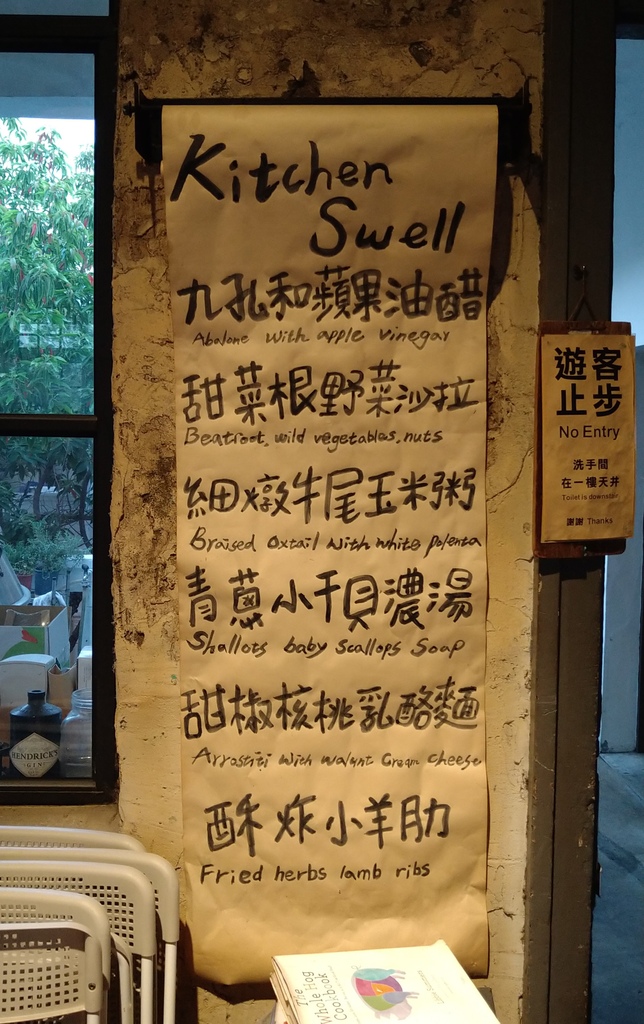 Kitchen
Swell
九孔和蘋果油醋
Abalone with apple vinegar
甜菜根野菜沙拉
Beatroot, wild vegetables, nuts
細燉牛尾玉米粥
Braised Oxtail with white polenta
青蔥小干貝濃湯
Shallots baby scallops Soap
甜椒核桃乳酪麵
Arrostiti with walnut Cream cheese
酥炸小羊肋
Fried herbs lamb ribs
遊客
止步
No Entry
洗手間
在一樓天井
Toilet is downstair
謝謝 Thanks
HENDRICK'S
GIN
The
Whole Hog
Cookbook